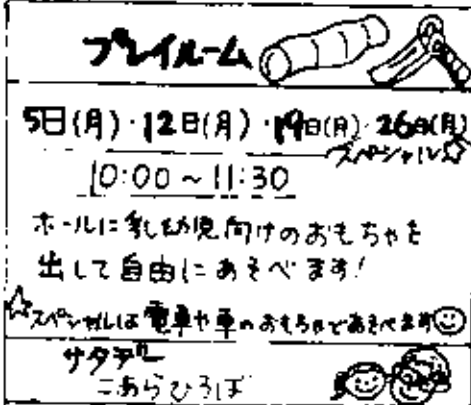 プレイルーム
5日(月)・12日(月)・19日(月)・26日(月)
スペシャル☆
10:00～11:30
ホールに乳幼児向けのおもちゃを
出して自由にあそべます!
☆スペシャルは電車や車のおもちゃであそべます☺
サタデー
こあらひろば